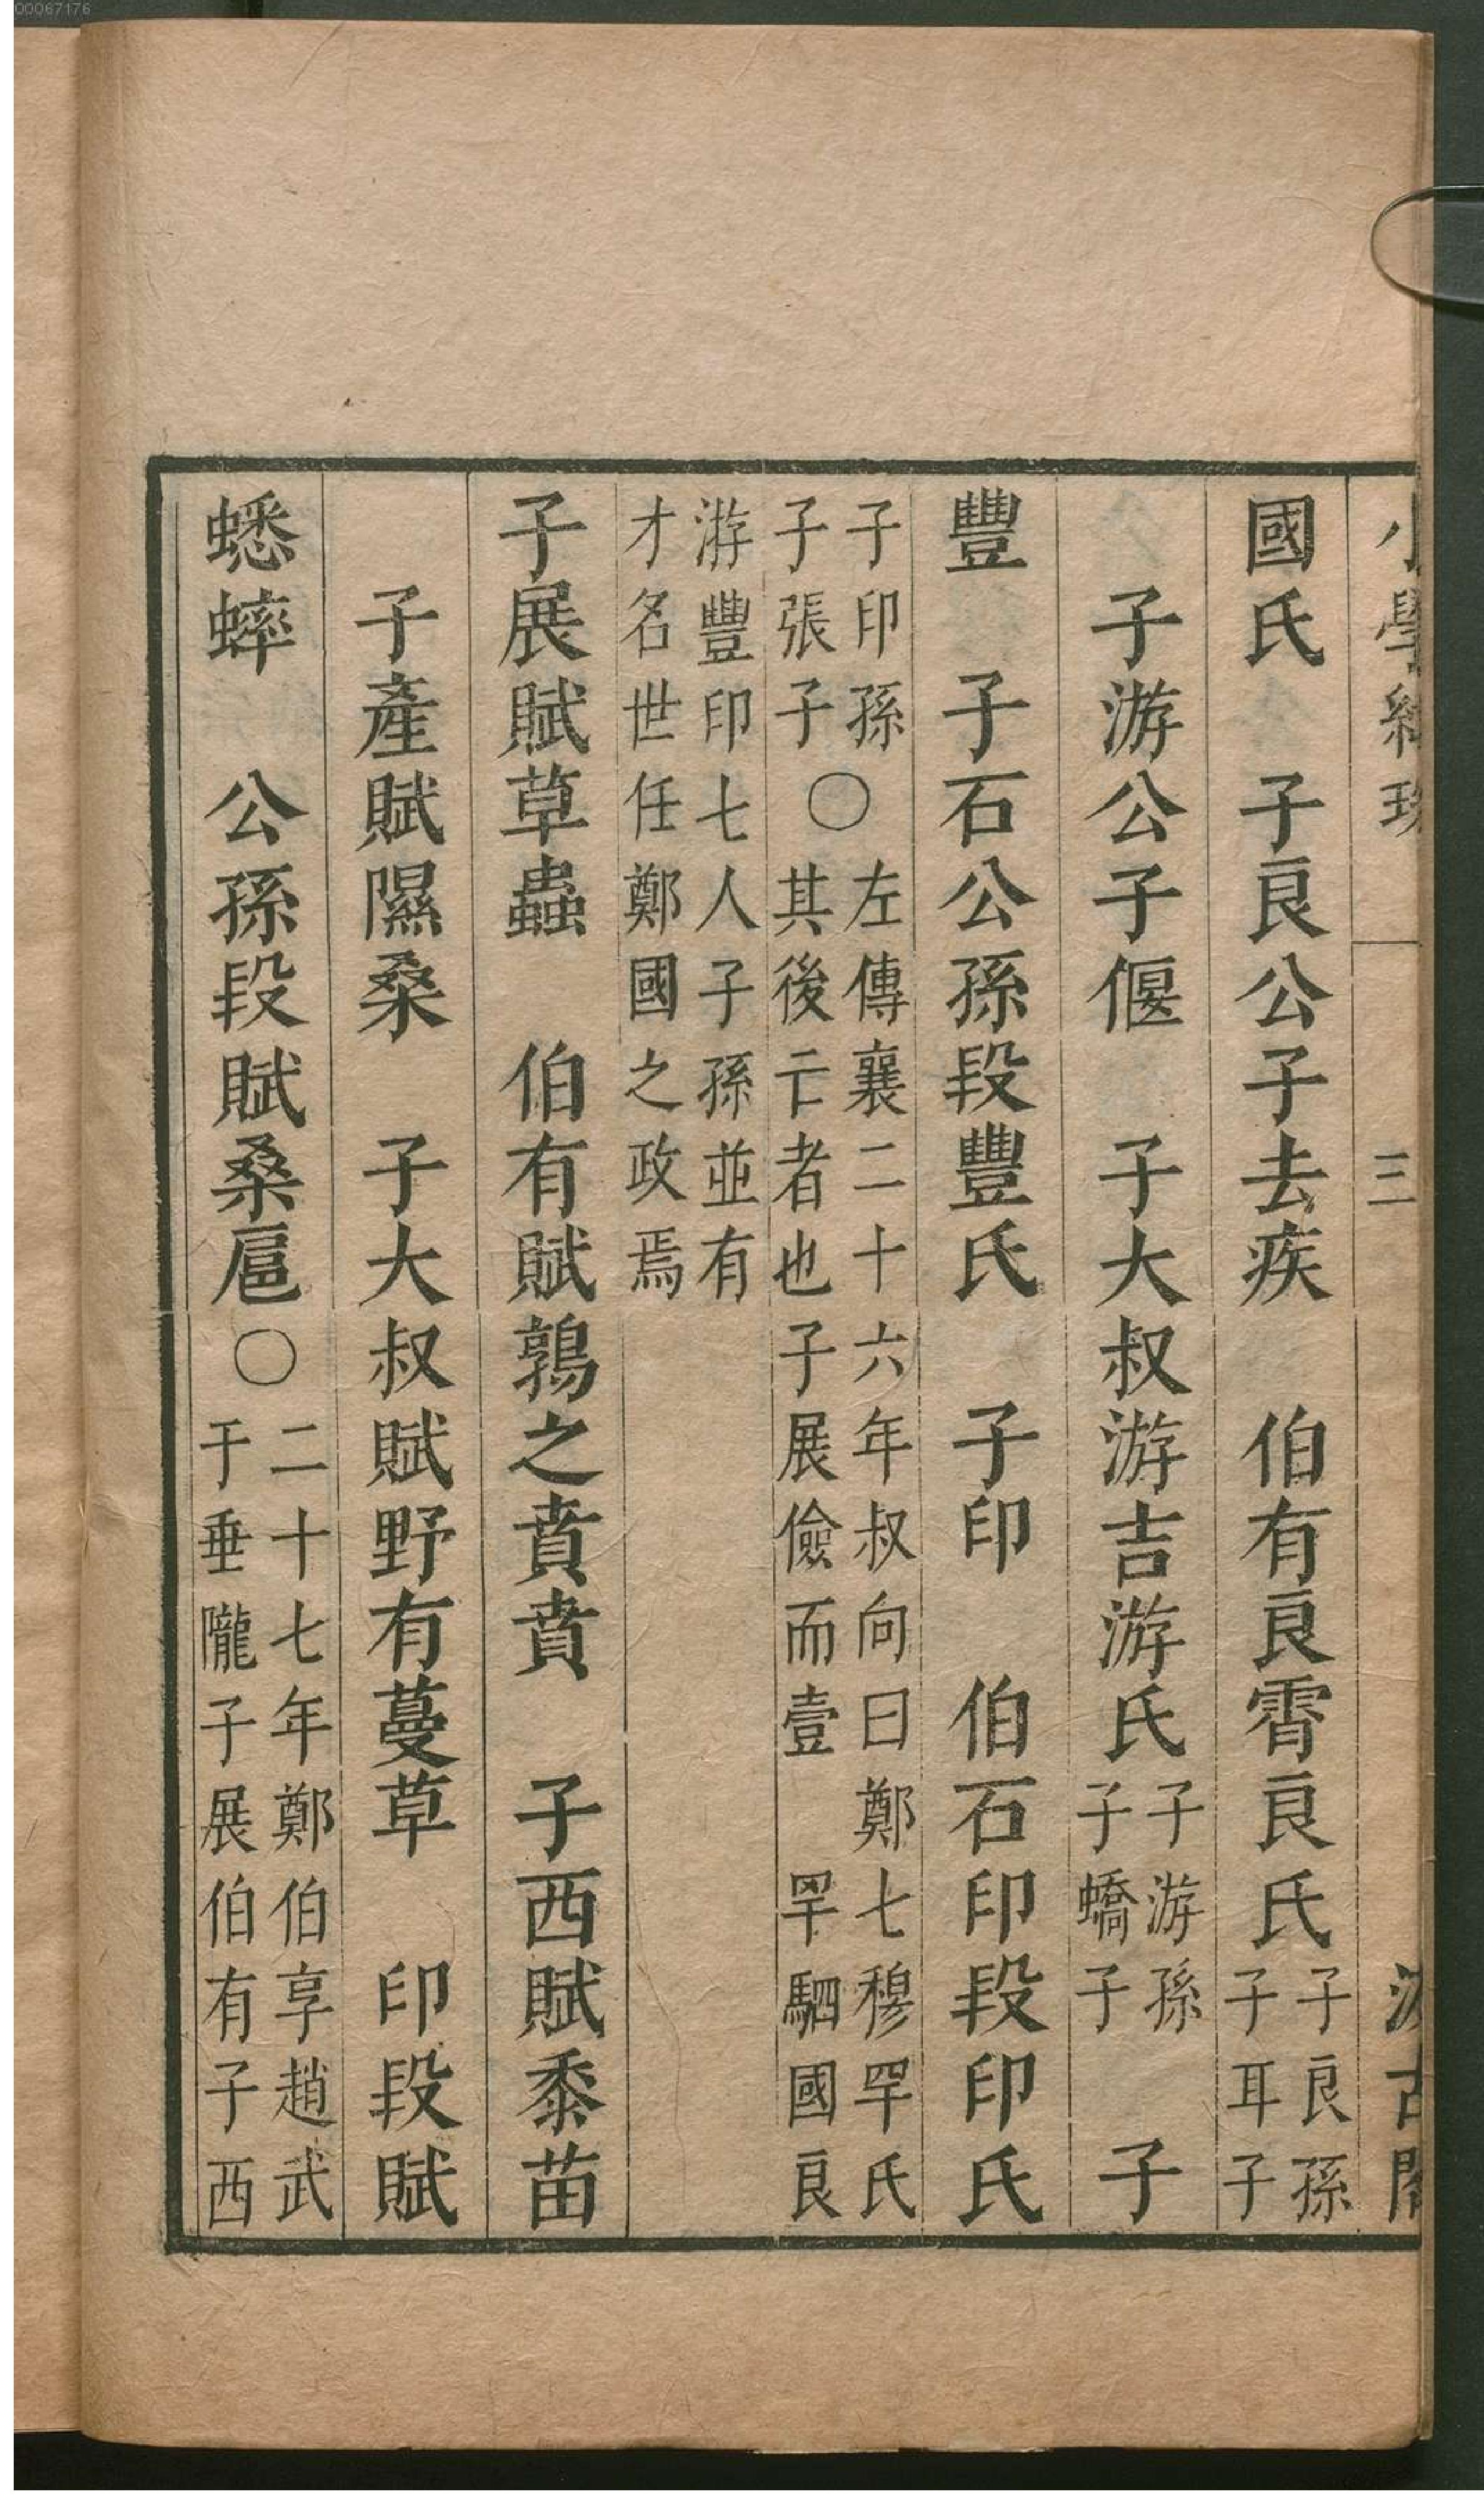 00067176
小學紺珠 三 汲古閣
國氏 子良公子去疾 伯有良霄良氏 子良孫
子耳子
子游公子偃 子大叔游吉游氏 子游孫
子蟜子 子
豐 子石公孫段豐氏 子印 伯石印段印氏
子印孫〇左傳襄二十六年叔向曰鄭七穆罕氏
子張子〇其後亡者也子展儉而壹 罕駟國良
游豐印七人子孫並有
才名世任鄭國之政焉
子展賦草蟲 伯有賦鶉之賁賁 子西賦黍苗
子產賦隰桑 子大叔賦野有蔓草 印段賦
蟋蟀 公孫段賦桑扈〇二十七年鄭伯享趙武
于垂隴子展伯有子西